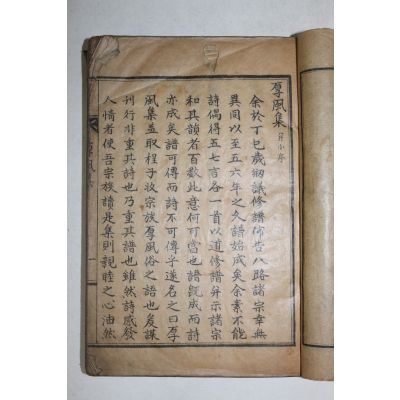 厚風集 并小序
余於丁巳歲刱議修譜佈告八路諸宗幸無
異同以至五六年之久譜始成矣余素不能
詩偶得五七言各一首以道修譜并示諸宗
和其韻者百數此意何可當也譜旣成而詩
亦成矣譜可傳而詩不可傳乎遂名之曰厚
風集盖取程子收宗族厚風俗之語也爰謀
刊行非重其詩也乃重其譜也雖然詩感發
人情者使吾宗族讀是集則親睦之心油然
厚風
一